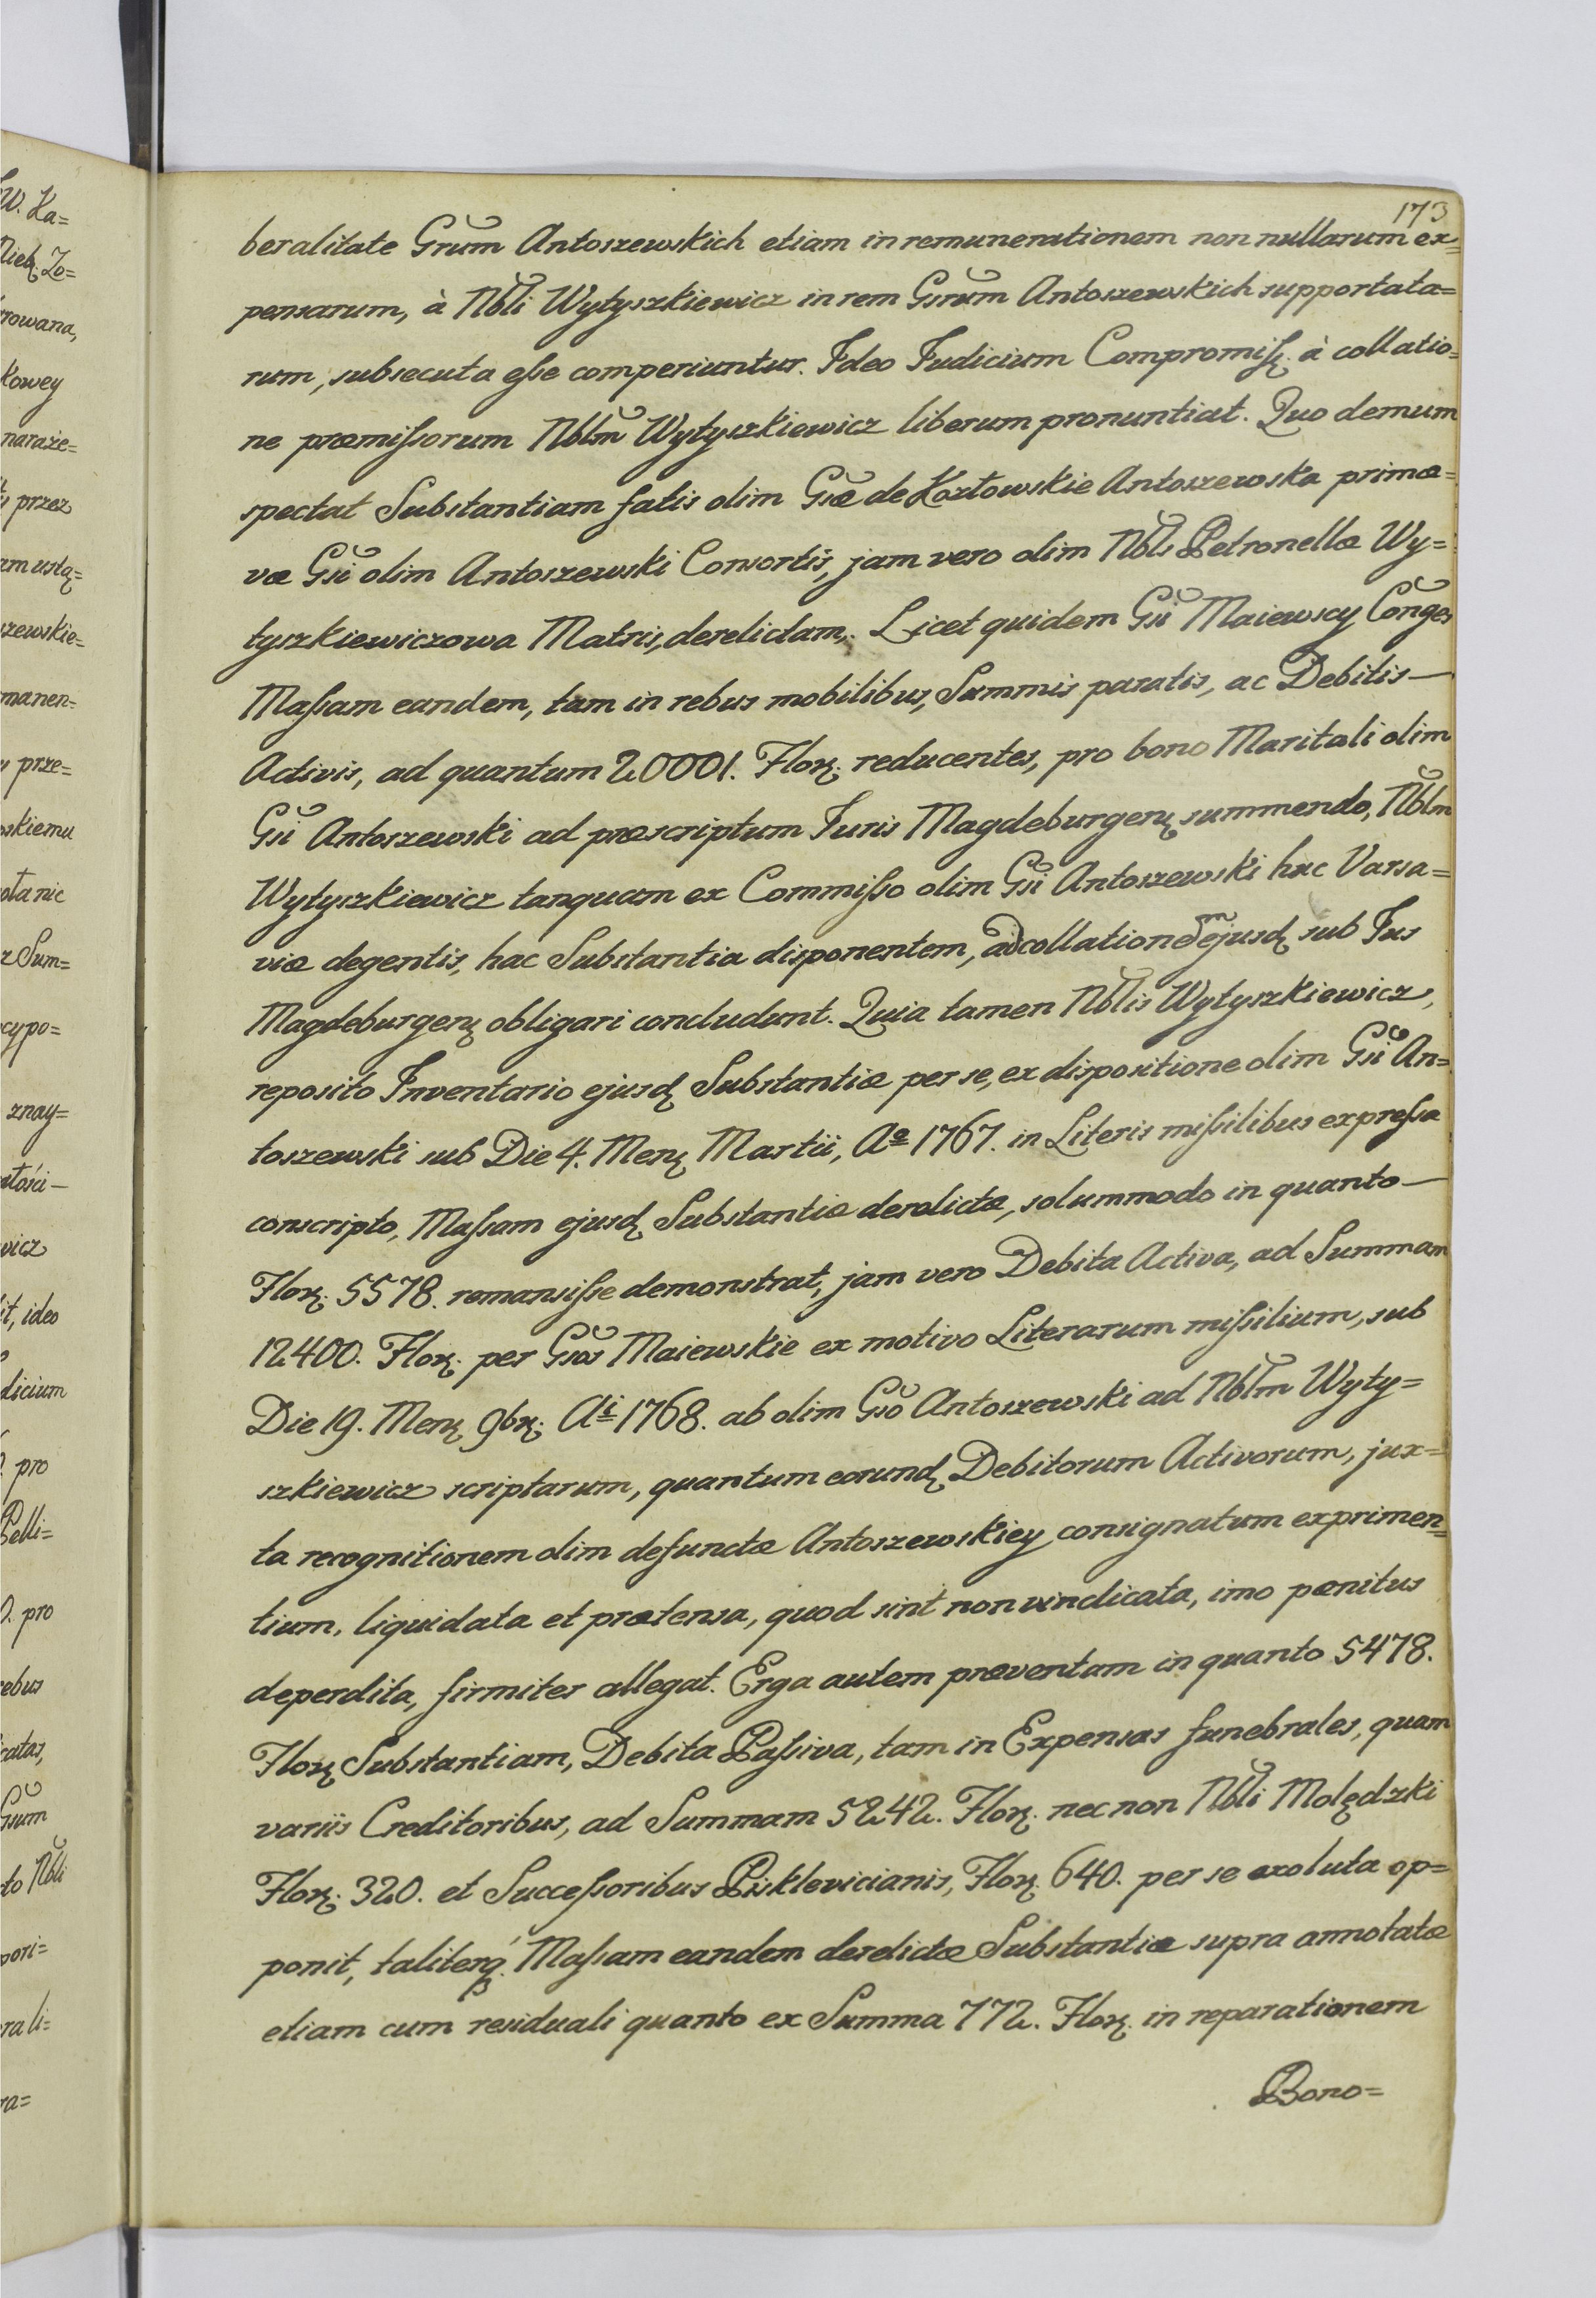 173
beralitate Grum Antoszewskich etiam in remunerationem non nullarum ex=
pensarum, à Nbli Wytyszkiewicz in rem Gsrum Antoszewskich supportata=
rum, subsecuta eſse comperiuntur. Ideo Judicium Compromiſs. à collatio=
ne præmiſsorum Nblm Wytyszkiewicz liberum pronuntiat. Quo demum
spectat Substantiam fatis olim Gsæ de Kozłowskie Antoszewska primæ=
væ Gsi olim Antoszewski Consortis, jam vero olim Nbls Petronellæ Wy=
tyszkiewiczowa Matris, derelictam, Licet quidem Gsi Maiewscy Conges
Maſsam eandem, tam in rebus mobilibus, Summis paratis, ac Debitis —
Activis, ad quantum 20001. Flor. reducentes, pro bono Maritali olim
Gsi Antoszewski ad præscriptum Juris Magdeburgen. summendo, Nblm
Wytyszkiewicz tanquam ex Commiſso olim Gsi Antoszewski hac Varsa=
viæ degentis, hac Substantia disponentem, ad collationem ejusd. sub Jus
Magdeburgen. obligari concludunt. Quia tamen Nblis Wytyszkiewicz,
reposito Inventario ejusd. Substantiæ per se, ex dispositione olim Gsi An=
toszewski sub Die 4. Men. Martii, Aº 1767. in Literis miſsilibus expreſsa
conscripto, Maſsam ejusd. Substantiæ derelictæ, solummodo in quanto —
Flor. 5578. remansiſse demonstrat, jam vero Debita Activa, ad Summam
12400. Flor. per Gsos Maiewskie ex motivo Literarum miſsilium, sub
Die 19. Men. 9br. Ai 1768. ab olim Gso Antoszewski ad Nblm Wyty=
szkiewicz scriptarum, quantum eorund. Debitorum Activorum, jux=
ta recognitionem olim defunctæ Antoszewskiey consignatum exprimen=
tium, liquidata et prætensa, quod sint non vindicata, imo pœnitus
deperdita, firmiter allegat. Erga autem præventam in quanto 5478.
Flor. Substantiam, Debita Paſsiva, tam in Expensas funebrales, quam
variis Creditoribus, ad Summam 5242. Flor. nec non Nbli Molędzki
Flor. 320. et Succeſsoribus Pisklevicianis, Flor. 640. per se exoluta op=
ponit, taliterq. Maſsam eandem derelictæ Substantiæ supra annotatæ
etiam cum residuali quanto ex Summa 772. Flor. in reparationem
Bono=